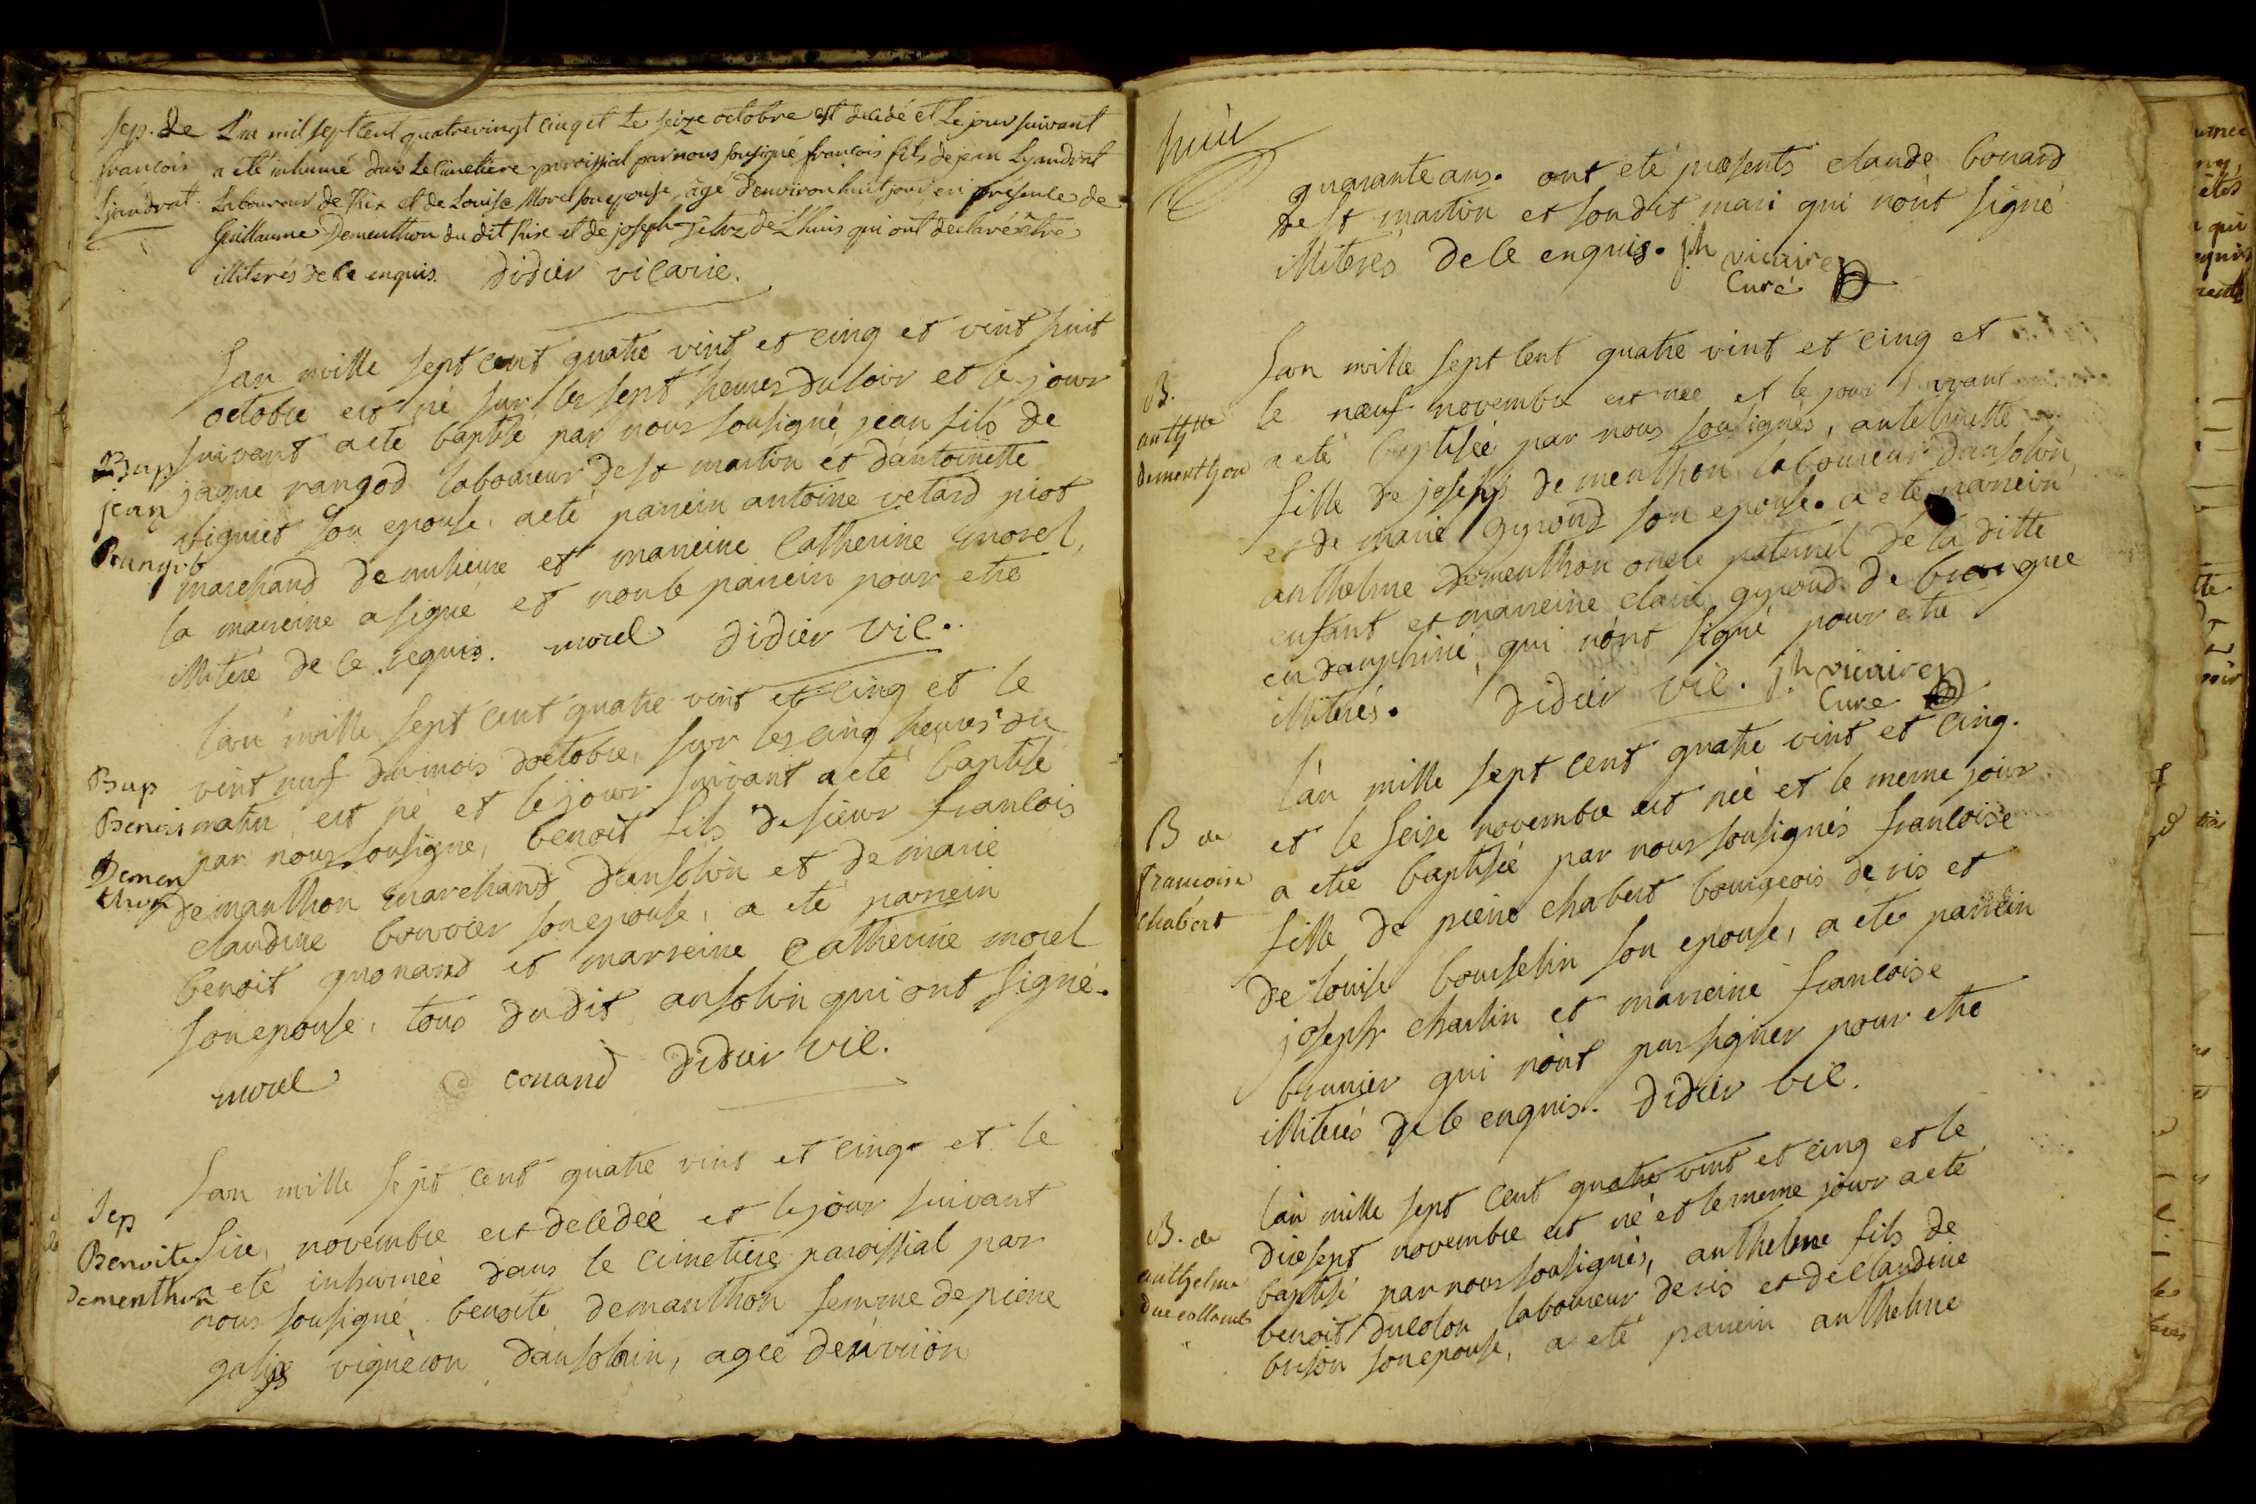 Sep. de
francois
Ljandrat
L'an mil sept cent quatrevingt cinq et Le seize octobre est decedé et Le jour suivant
a été inhumé dans Le cimetiere paroissial par nous sousigné francois fils de jean Ljandrat
Laboureur de Rix et de Louise Morel son epouse, agé d'environ huit jour en présence de
Guillaume Dementhon du dit Rix et de joseph de L'huis qui ont declaré être
illiterés de ce enquis. Didier vicarie.
Bap.
jean
Rangod
L'an mille sept cent quatre vint et cinq et vint huit
octobre est né sur les sept heures du soir et le jour
suivant a eté baptisé par nous sousigné jean fils de
jaque rangod laboureur de st martin et d'antoinette
son epouse, a eté parrein antoine vetard piot
marchand de et marreine Catherine morel,
la marreine a signé et non le parrein pour etre
illiteré de ce requis. morel Didier vic.
Bap
Benoit
Demen
thon
L'an mille sept cent quatre vint et cinq et le
vint neuf du mois d'octobre, sur les cinq heures du
matin est né et le jour suivant a eté baptisé
par nous sousigné, benoit fils de sieur francois
demanthon marchand d'ansolin et de marie
claudine bovoier son epouse, a eté parrein
benoit quonand et marreine Catherine morel
son epouse, tous du dit ansolin qui ont signé.
morel conand Didier vic.
Sep
Benoite
Dementhon
L'an mille sept cent quatre vint et cinq et le
sixe novembre est decedeé et le jour suivant
a eté inhumeé dans le cimetiere paroissial par
nous sousigné benoite demanthon femme de pierre
vigneron d'ansolain, ageé denvirion
quarante ans. ont eté præsents claude bonard
de st martin et son dit mari qui n'ont signé
illiterés de ce enquis. jh vicaire
Curé
B.
anthtte
dementhon
L'an mille sept cent quatre vint et cinq et
le nœuf novembre est neé et le jour suivant
a eté baptiseé par nous sousignés, anthelmette
fille de joseph de menthon laboureur d'ansolin,
et de marie gyroud son epouse. a eté parrein
anthelme dementhon oncle paternel de la ditte
enfant et marreine claire gyroud de brangue
en dauphiné, qui n'ont signé pour etre
illiterés. Didier vic. jh vicaire
Curé
B de
francoise
chabert
L'an mille sept cent quatre vint et cinq.
et le seise novembre est neé et le meme jour
a eté baptiseé par nous sousignés francoise
fille de pierre chabert bourgeois de ris et
de louise bourselin son epouse, a eté parrein
joseph charlin et marreine francoise
brunier qui n'ont pas signer pour etre
illiterés de ce enquis. Didier vic.
B. de
anthelme
ducollomb
L'an mille sept cent quatre vint et cinq et le
dixsept novembre est né et le meme jour a eté
baptisé par nous sousignés, anthelme fils de
benoit ducolon laboureur de ris et de claudine
brison son epouse, a eté parrein anthelme